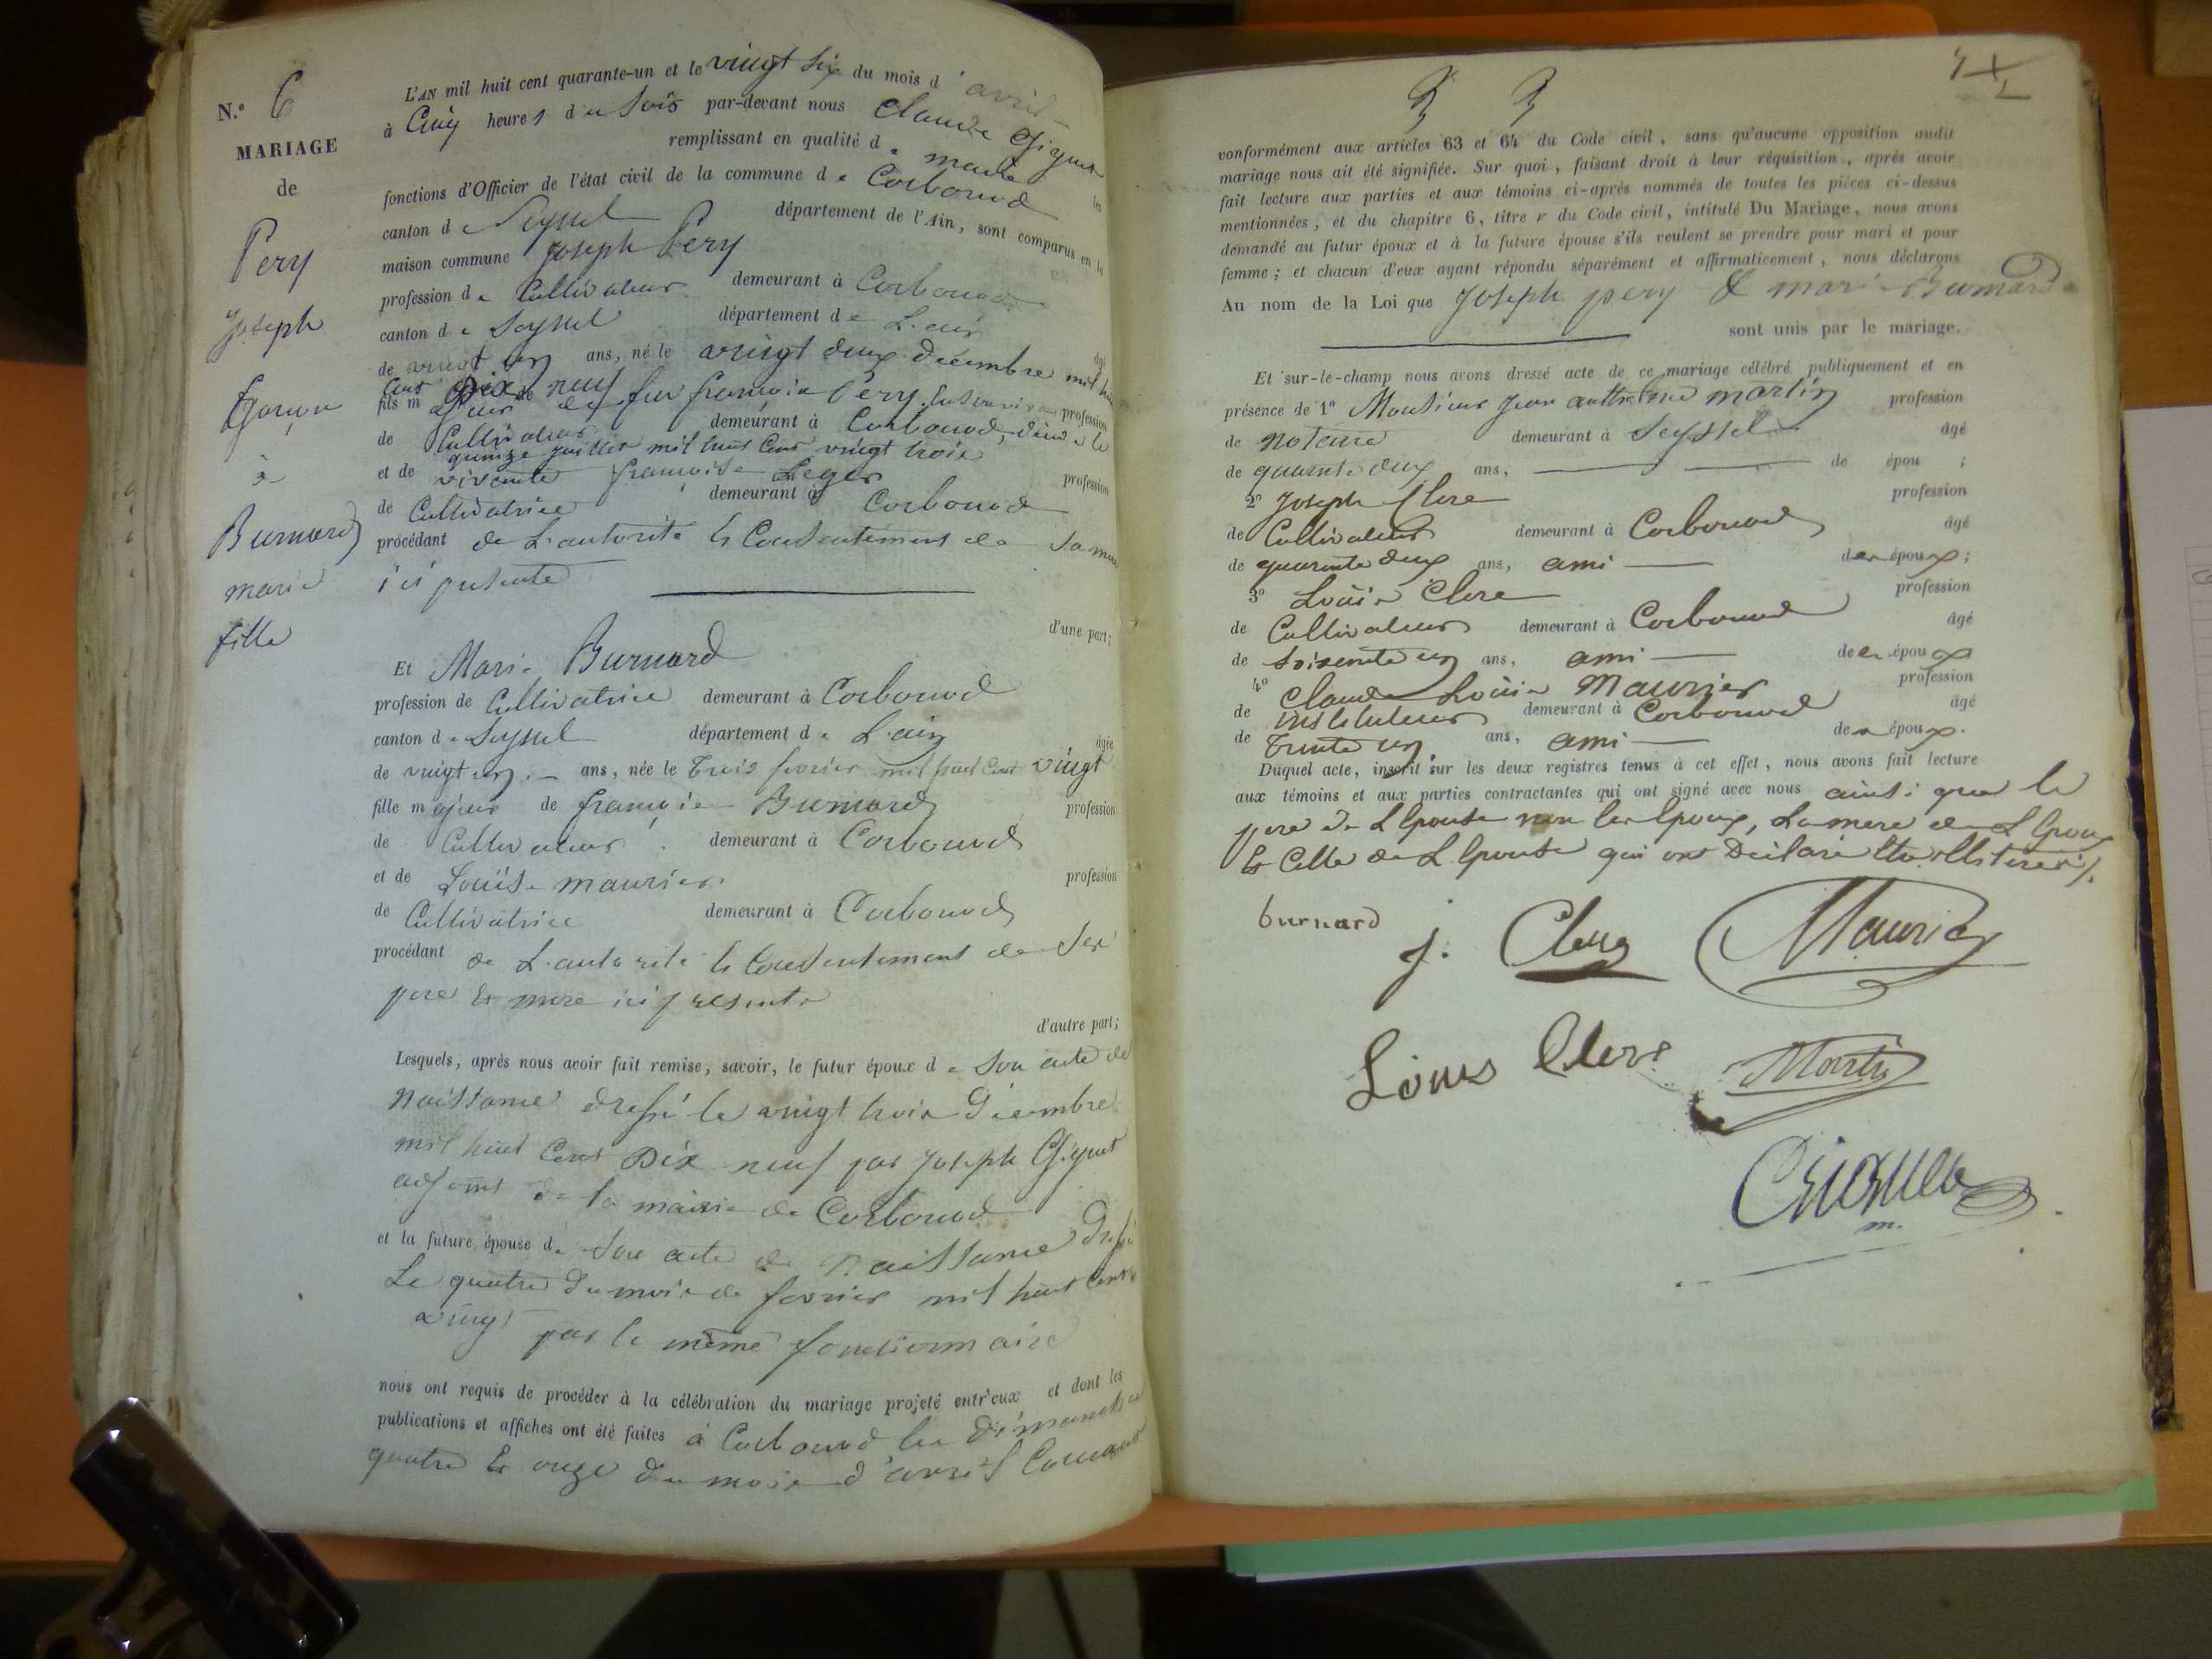 N.° 6
MARIAGE
de
Pery
Joseph
Garçon
à
Burnard
marie
fille
L'AN mil huit cent quarante-un et le vingt six du mois d'avril
à Cinq heures du Soir par-devant nous Claude Giguet
remplissant en qualité de maire les
fonctions d'Officier de l'état civil de la commune de Corbonod
canton de Seyssel département de l'Ain, sont comparus en la
maison commune Joseph Pery
profession de Cultivateur demeurant à Corbonod
canton de Seyssel département de L'ain âgé
de vingt un ans, né le vingt deux decembre mil huit
Cent Dix neuf
fils majeur de feu françois Pery profession
de Cultivateur demeurant à Corbonod, décédé le
quinze juillet mil huit Cent vingt trois
et de vivante françoise Leger profession
de Cultivatrice demeurant à Corbonod
procédant de L'autorité & Consentement de Sa mere
ici presente
d'une part;
Et Marie Burnard
profession de Cultivatrice demeurant à Corbonod
canton de Seyssel département de L'ain âgée
de vingt un ans, née le trois fevrier mil huit Cent vingt
fille majeur de françois Burnard profession
de Cultivateur demeurant à Corbonod
et de Louise maurier profession
de Cultivatrice demeurant à Corbonod
procédant de L'autorité & Consentement de Ses
pere & mere ici presents
d'autre part;
Lesquels, après nous avoir fait remise, savoir, le futur époux de Son acte de
Naissance dressé le vingt trois Décembre
mil huit Cent Dix neuf par Joseph Giguet
adjoint de la mairie de Corbonod
et la future épouse de Son acte de Naissance Dressé
Le quatre du mois de fevrier mil huit Cent
vingt par le même fonctionnaire
nous ont requis de procéder à la célébration du mariage projeté entr'eux et dont les
publications et affiches ont été faites à Corbonod les Dimanches
quatre & onze du mois d'avril Courant
conformément aux articles 63 et 64 du Code civil, sans qu'aucune opposition audit
mariage nous ait été signifiée. Sur quoi, faisant droit à leur réquisition, après avoir
fait lecture aux parties et aux témoins ci-après nommés de toutes les pièces ci-dessus
mentionnées, et du chapitre 6, titre v du Code civil, intitulé Du Mariage, nous avons
demandé au futur époux et à la future épouse s'ils veulent se prendre pour mari et pour
femme; et chacun d'eux ayant répondu séparément et affirmativement, nous déclarons
Au nom de la Loi que Joseph pery & marie Burnard
sont unis par le mariage.
Et sur-le-champ nous avons dressé acte de ce mariage célébré publiquement et en
présence de 1° Monsieur Jean anthelme martin profession
de notaire demeurant à Seyssel âgé
de quarante deux ans, de épou ;
2° Joseph Clerc profession
de Cultivateur demeurant à Corbonod âgé
de quarante deux ans, ami des époux;
3° Louis Clerc profession
de Cultivateur demeurant à Corbonod âgé
de Soixante un ans, ami des époux
4° Claude Louis Maurier profession
de instituteur demeurant à Corbonod âgé
de trente un ans, ami des époux.
Duquel acte, inscrit sur les deux registres tenus à cet effet, nous avons fait lecture
aux témoins et aux parties contractantes qui ont signé avec nous ainsi que le
pere de L'Epouse non les Epoux, La mere de L'Epoux
& Celle de L'Epouse qui ont Déclaré être illiterés
burnard
J. Clerc
Maurier
Louis Clerc
Martin
Giguet
m.